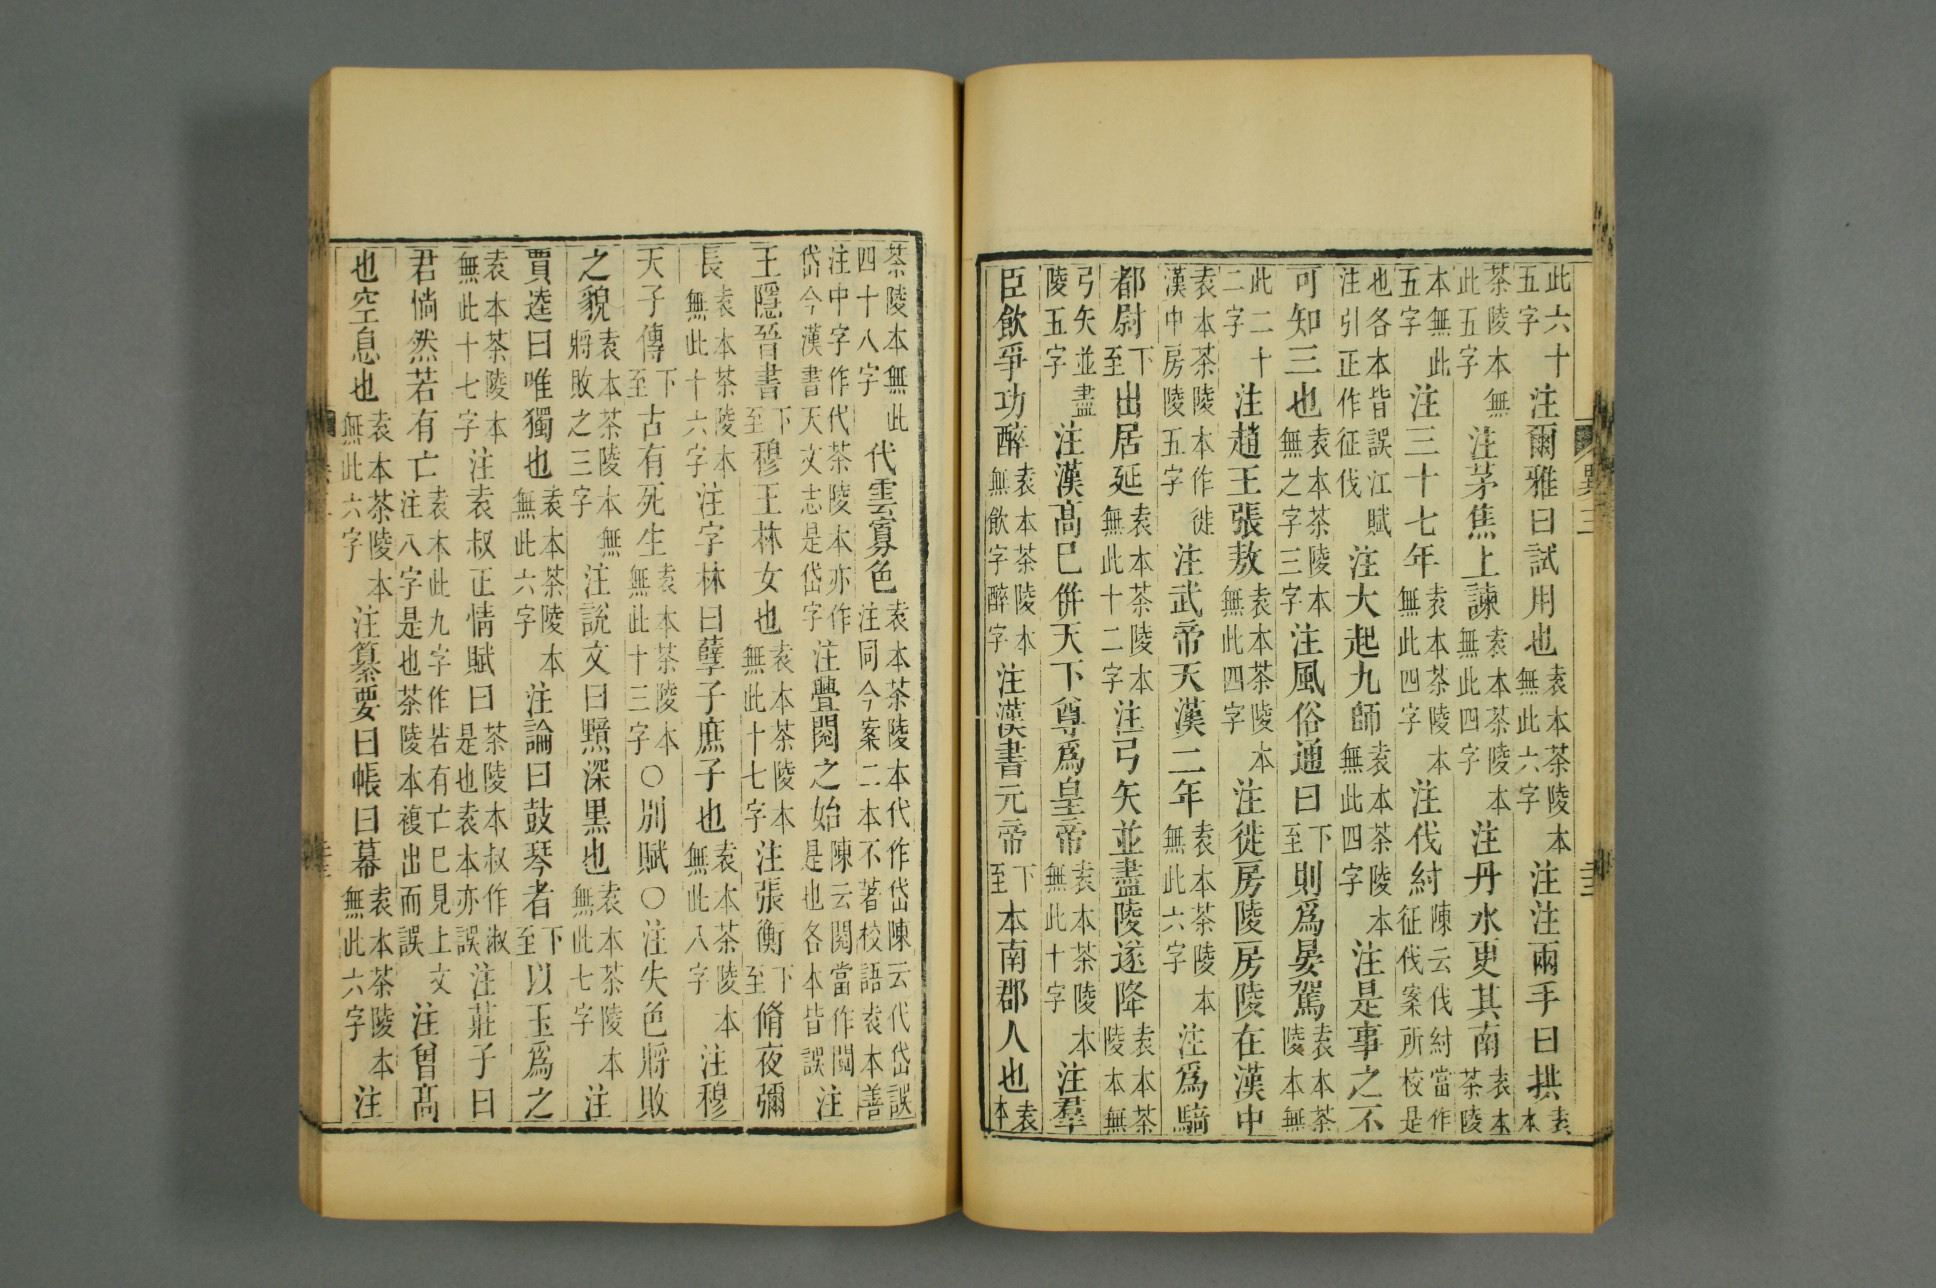 此六十五字注爾雅曰試用也袁本茶陵本無此六字注注兩手曰拱袁本
茶陵本無此五字注茅焦上諫袁本茶陵本無此四字注丹水更其南袁本茶陵
本無此五字注三十七年袁本茶陵本無此四字注伐紂陳云伐紂當作征伐案所校是
也各本皆誤江賦注引正作征伐注大起九師袁本茶陵本無此四字注是事之不
可知三也袁本茶陵本無之字三字注風俗通曰下至則爲晏駕袁本茶陵本無
此二十二字注趙王張敖袁本茶陵本無此四字注徙房陵房陵在漢中
袁本茶陵本作徙漢中房陵五字注武帝天漢二年袁本茶陵本無此六字注爲騎
都尉下至出居延袁本茶陵本無此十二字注弓矢並盡陵遂降袁本茶陵本無
弓矢並盡陵五字注漢高已併天下尊爲皇帝袁本茶陵本無此十字注羣
臣飲爭功醉袁本茶陵本無飲字醉字注漢書元帝下至本南郡人也袁本
茶陵本無此四十八字代雲寡色袁本茶陵本代作岱陳云代岱誤注同今案二本不著校語袁本善
注中字作代茶陵本亦作岱今漢書天文志是岱字注舋閱之始陳云閱當作閲是也各本皆誤注
王隱晉書下至穆王林女也袁本茶陵本無此十七字注張衡下至脩夜彌
長袁本茶陵本無此十六字注字林曰孽子庶子也袁本茶陵本無此八字注穆
天子傳下至古有死生袁本茶陵本無此十三字○別賦○注失色將敗
之貌袁本茶陵本無將敗之三字注說文曰黯深黑也袁本茶陵本無此七字注
賈逵曰唯獨也袁本茶陵本無此六字注論曰鼓琴者下至以玉爲之
袁本茶陵本無此十七字注袁叔正情賦曰茶陵本叔作淑是也袁本亦誤注莊子曰
君惝然若有亡袁本此九字作若有亡已見上文注八字是也茶陵本複出而誤注曾高
也空息也袁本茶陵本無此六字注纂要曰帳曰幕袁本茶陵本無此六字注